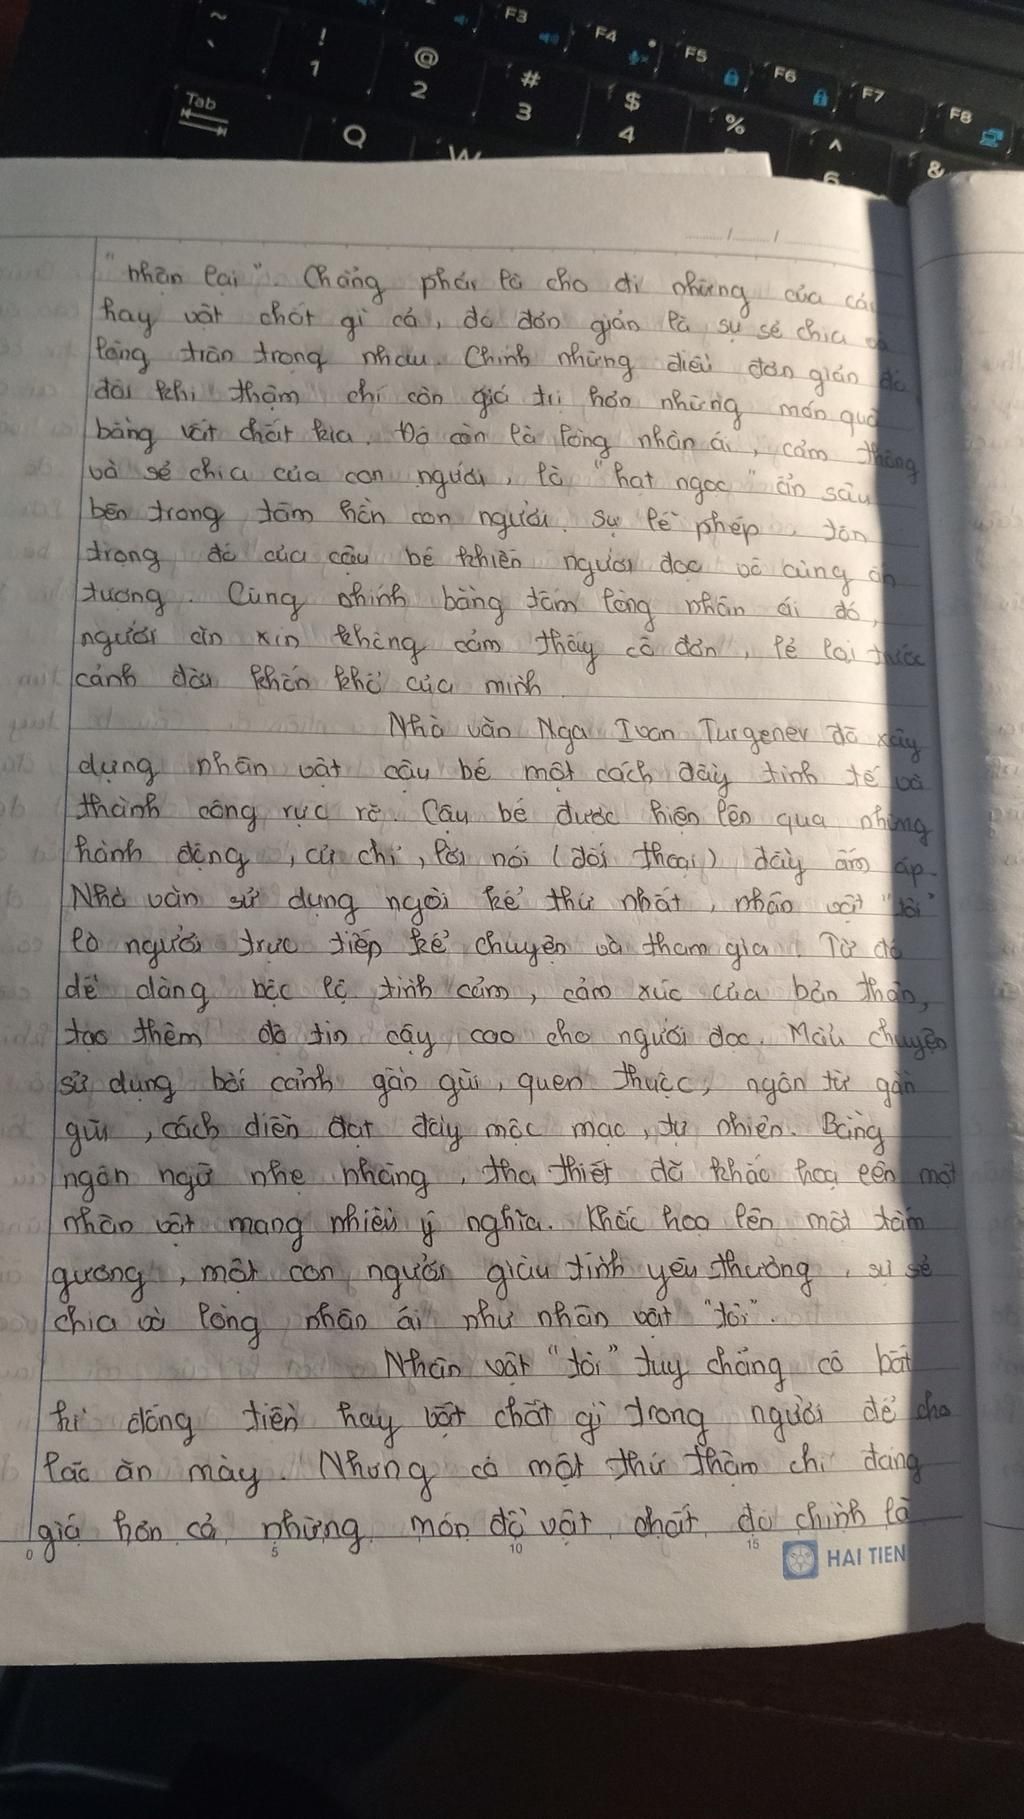 ~ ` ! 1 @ 2 # 3 $ 4 % ^ 6 &
F3 F4 F5 F6 F7 F8
Tab Q W
"nhân lại". Chẳng phải là cho đi những của cải
hay vật chất gì cả, đó đơn giản là sự sẻ chia và
lòng trân trọng nhau. Chính những điều đơn giản đó
đôi khi thậm chí còn giá trị hơn những món quà
bằng vật chất kia. Đó còn là lòng nhân ái, cảm thông
và sẻ chia của con người, là "hạt ngọc" ẩn sâu
bên trong tâm hồn con người. Sự lễ phép, tôn
trọng đó của cậu bé khiến người đọc vô cùng ấn
tượng. Cũng chính bằng tấm lòng nhân ái đó,
người ăn xin không cảm thấy cô đơn, lẻ loi trước
cảnh đời khốn khổ của mình.
Nhà văn Nga Ivan Turgenev đã xây
dựng nhân vật cậu bé một cách đầy tinh tế và
thành công rực rỡ. Cậu bé được hiện lên qua những
hành động, cử chỉ, lời nói (đối thoại) đầy ấm áp.
Nhà văn sử dụng ngôi kể thứ nhất, nhân vật "tôi"
là người trực tiếp kể chuyện và tham gia. Từ đó
dễ dàng bộc lộ tình cảm, cảm xúc của bản thân,
tạo thêm độ tin cậy cao cho người đọc. Mẩu chuyện
sử dụng bối cảnh gần gũi, quen thuộc, ngôn từ gần
gũi, cách diễn đạt đầy mộc mạc, tự nhiên. Bằng
ngôn ngữ nhẹ nhàng, tha thiết đã khắc hoạ lên một
nhân vật mang nhiều ý nghĩa. Khắc hoạ lên một tấm
gương, một con người giàu tình yêu thương, sự sẻ
chia và lòng nhân ái như nhân vật "tôi".
Nhân vật "tôi" tuy chẳng có bất
kì đồng tiền hay vật chất gì trong người để cho
lão ăn mày. Nhưng có một thứ thậm chí đáng
giá hơn cả những món đồ vật chất, đó chính là
0 5 10 15
HAI TIEN